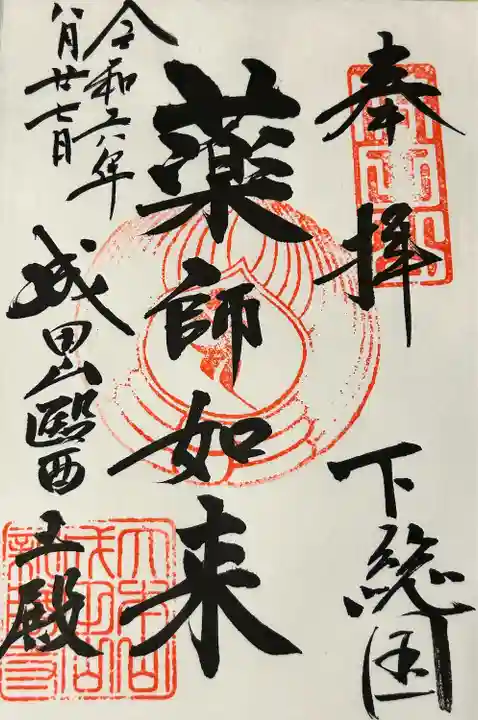 奉拝
下総国
薬師如来
令和六年
八月廿七日
成田山醫王殿